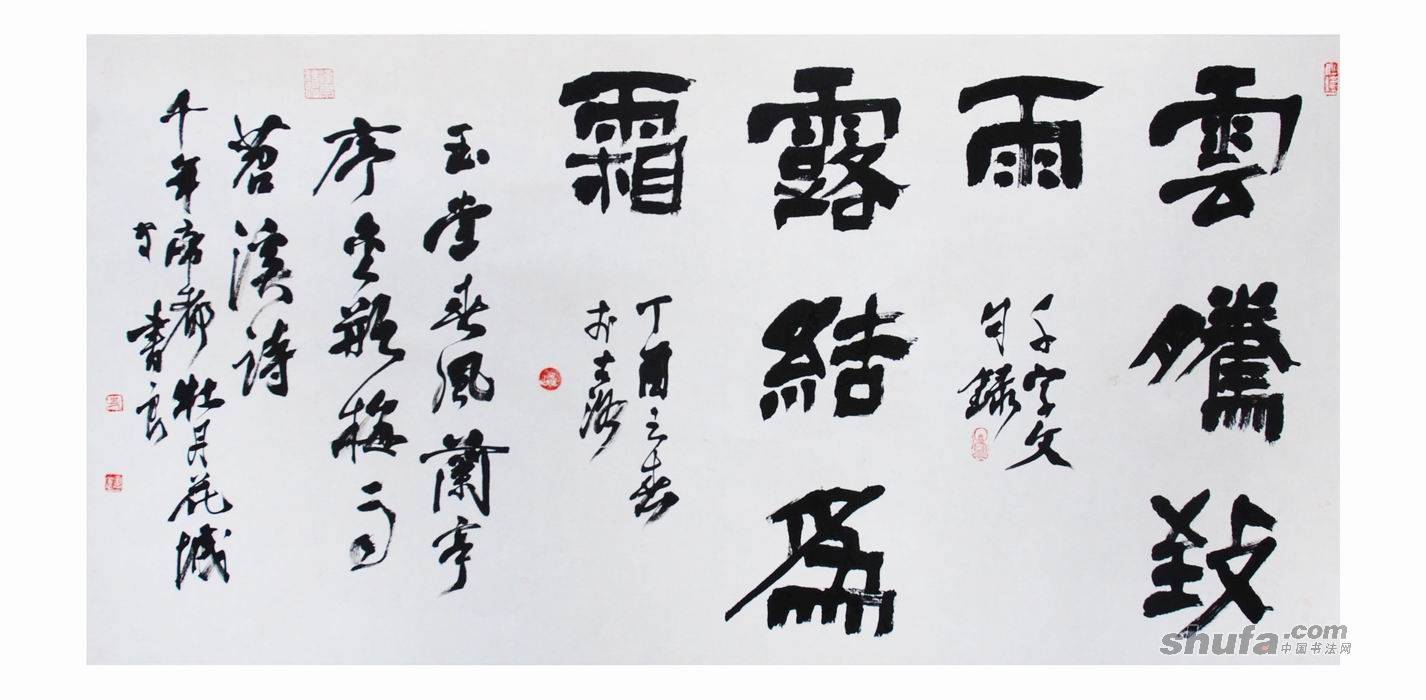 雲騰致
雨
千字文
句錄
露結爲
霜
丁酉之春
於古洛
玉堂春風蘭亭
序金瓶梅雨
苕溪詩
千年帝都牡丹花城
書良
shufa.com
中国书法网